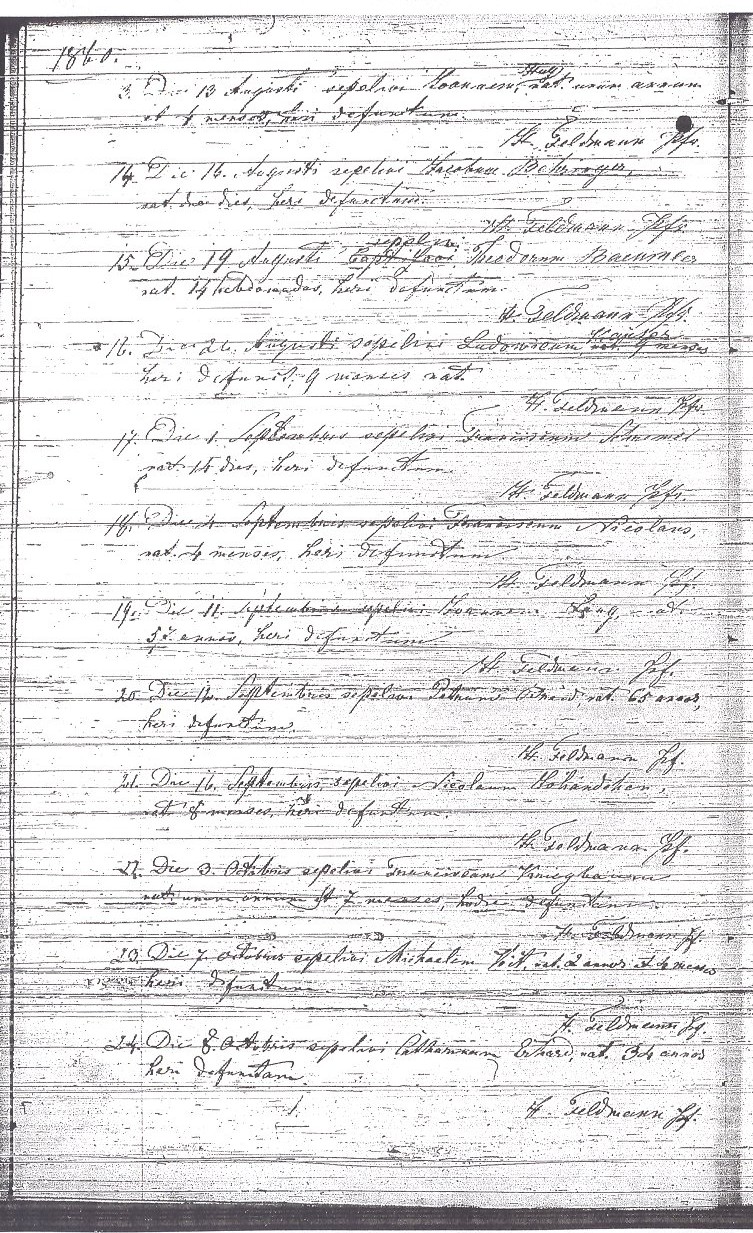 1860.
3. Die 13 Augusti sepelivi Joannem nat. unum annum
et 4 menses, heri defunctum.
H. Feldmann Pfr.
14. Die 16. Augusti sepelivi Jacobum Behringer,
nat. duo dies, heri defunctum.
H. Feldmann Pfr.
sepelivi
15. Die 19 Augusti Theodorum Baeumler
nat. 14 hebdomadas, heri defunctum.
H. Feldmann Pfr.
16. Die 26. Augusti sepelivi Ludovicum nat. 9 menses
heri defunct, 9 menses nat.
H. Feldmann Pfr.
17. Die 1. Septembris sepelivi Franciscum
nat. 15 dies, heri defunctum.
H. Feldmann Pfr.
18. Die 4. Septembris sepelivi Franciscum Nicolaus,
nat. 4 menses, heri defunctum
H. Feldmann Pf.
19. Die 11. Septembris sepelivi Joannem Lang, nat.
52 annos, heri defunctum
H. Feldmann Pf.
20. Die 12. Septembris sepelivi Petrum nat. 65 annos,
heri defunctum.
H. Feldmann Pf.
21. Die 16. Septembris sepelivi Nicolaum
nat. 8 menses, heri defunctum.
H. Feldmann Pf.
22. Die 3. Octobris sepelivi Franciscam
nat. unum annum et 7 menses, hodie defunctum.
H. Feldmann Pf.
23. Die 7. Octobris sepelivi Michaelem Veit, nat. 2 annos et 4 menses
heri defunctum
H. Feldmann Pf.
24. Die 8. Octobris sepelivi Catharinam Erhard, nat. 34 annos
heri defunctam.
H. Feldmann Pf.